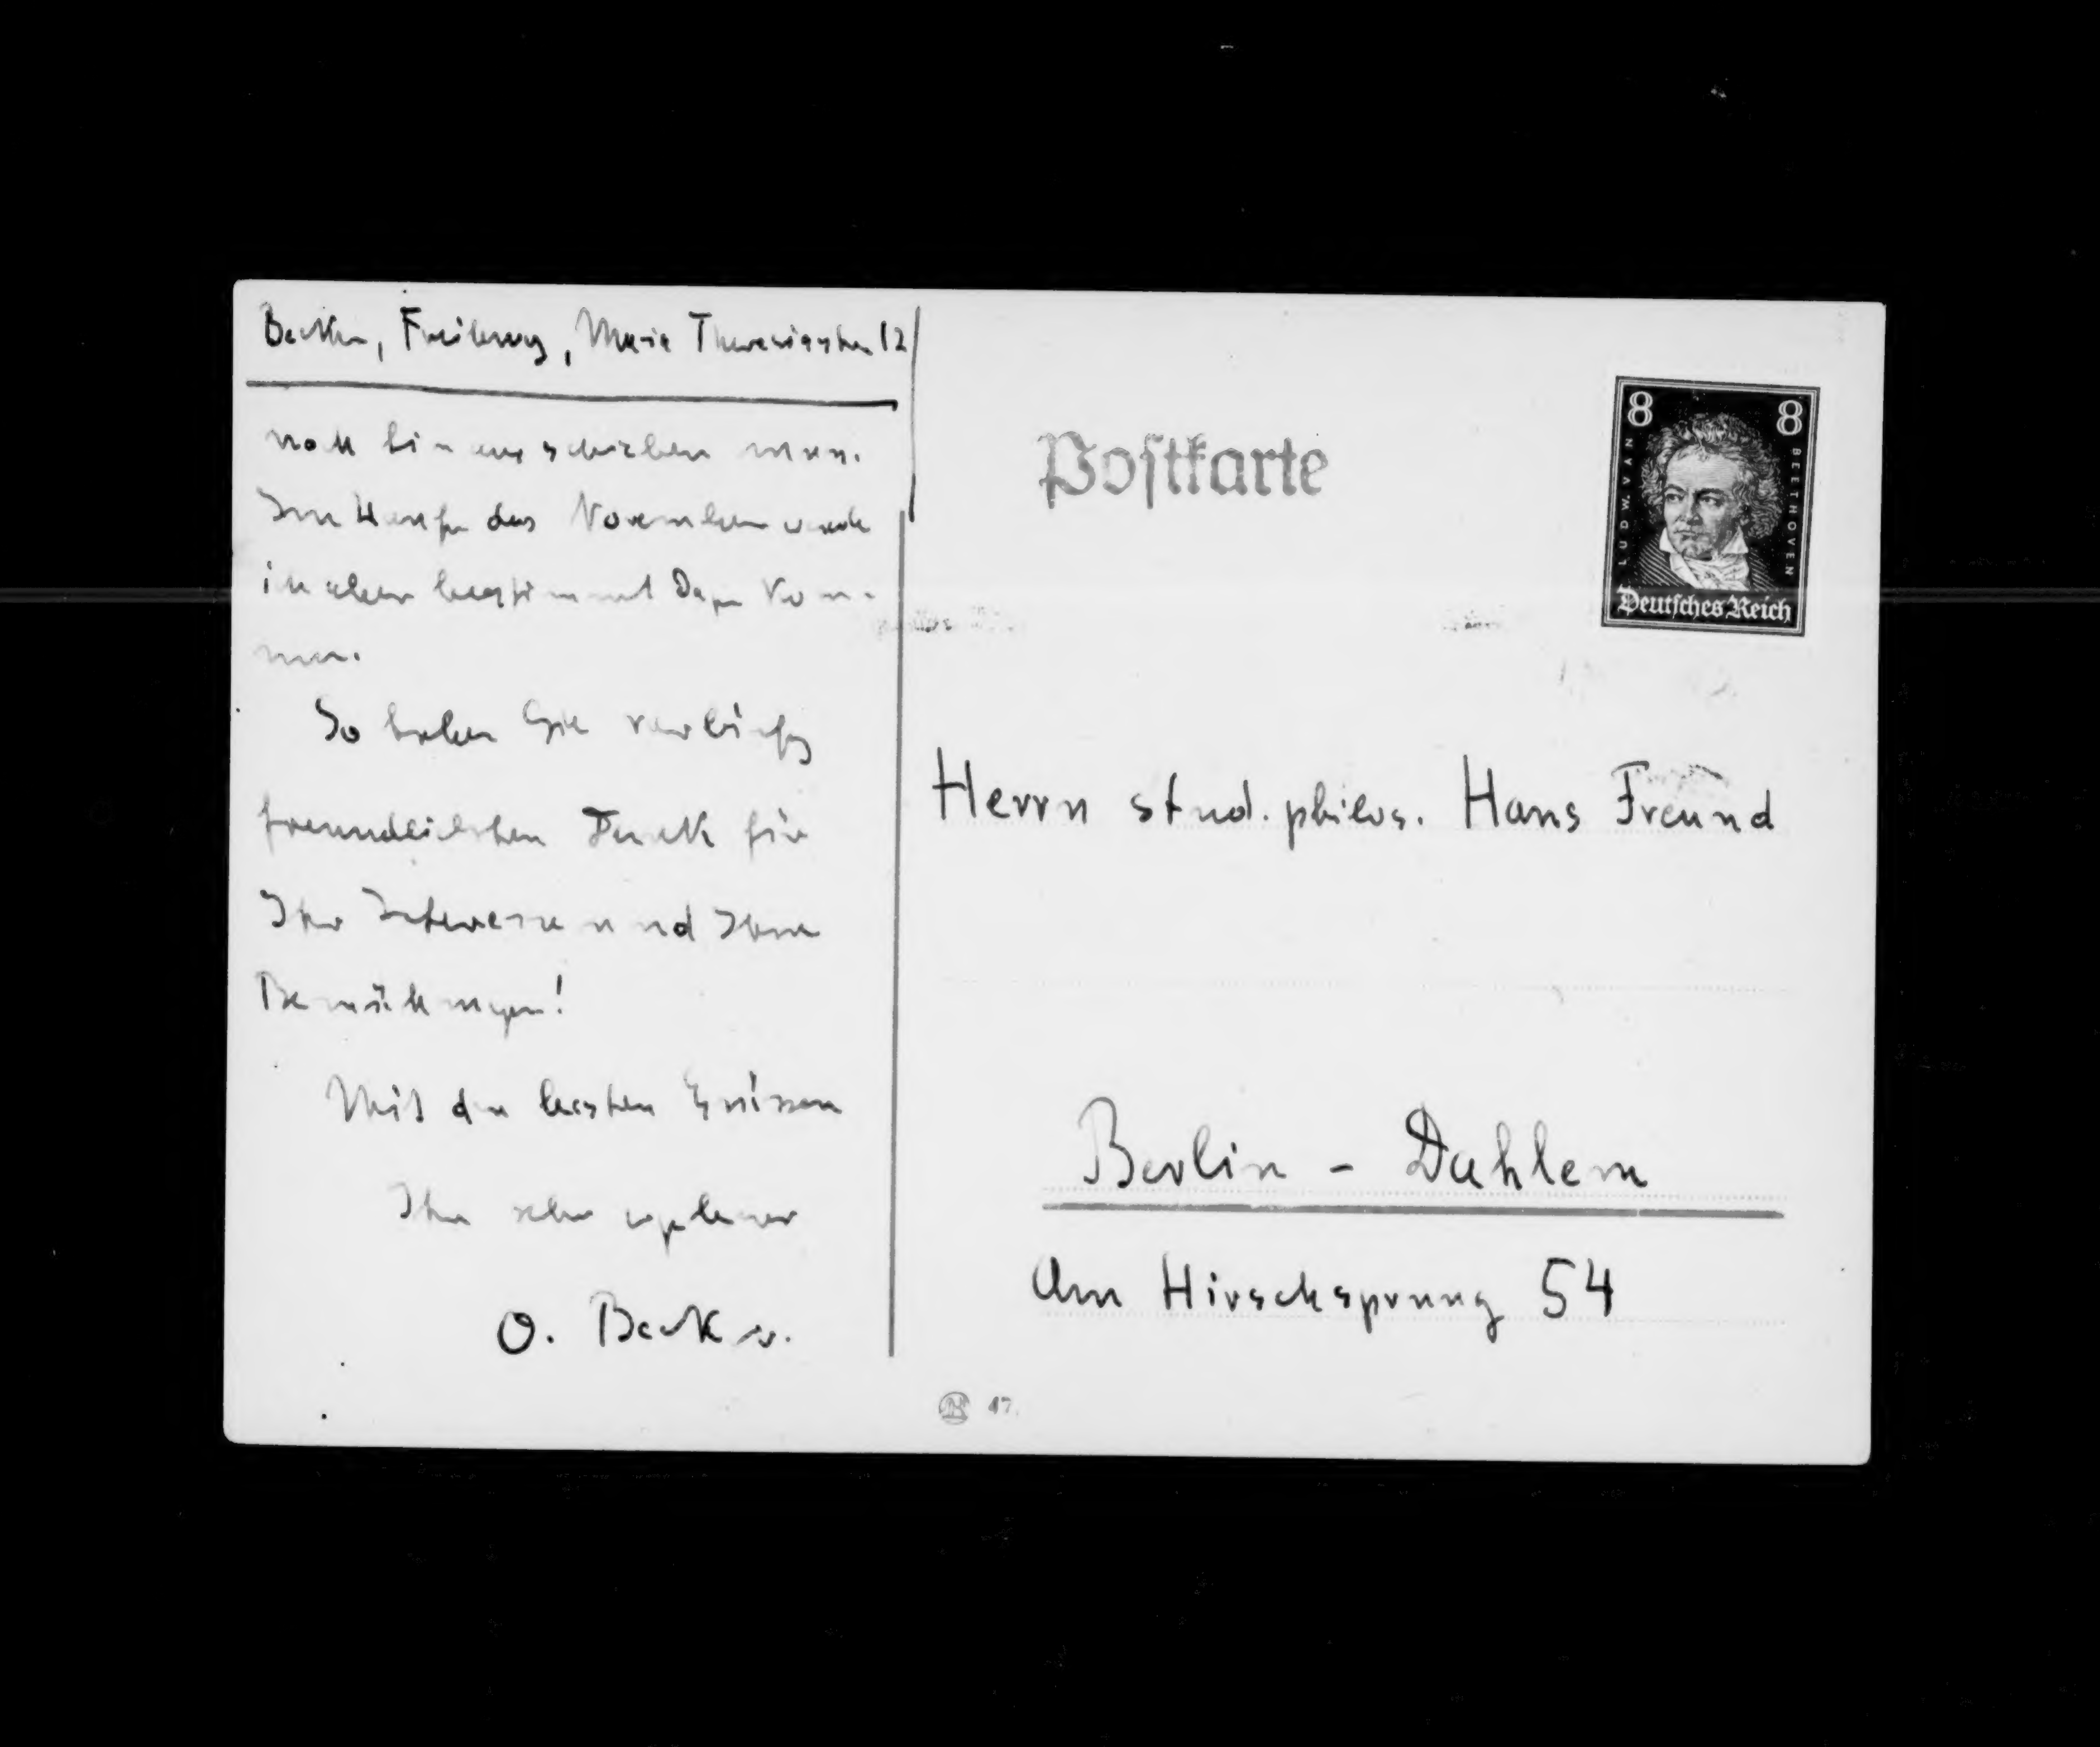 Becker, Freiburg, Maria Theresiastr. 12
noch hinausschieben muss.
Im Laufe des November werde
ich aber bestimmt dazu kom-
men.
So haben Sie vorläufig
freundlichsten Dank für
Ihr Interesse und Ihre
Bemühungen!
Mit den besten Grüssen
Ihr sehr ergebener
O. Becker.
Postkarte
8 8
LUDW. VAN BEETHOVEN
Deutsches Reich
Herrn stud. philos. Hans Freund
Berlin - Dahlem
Am Hirschsprung 54
17.